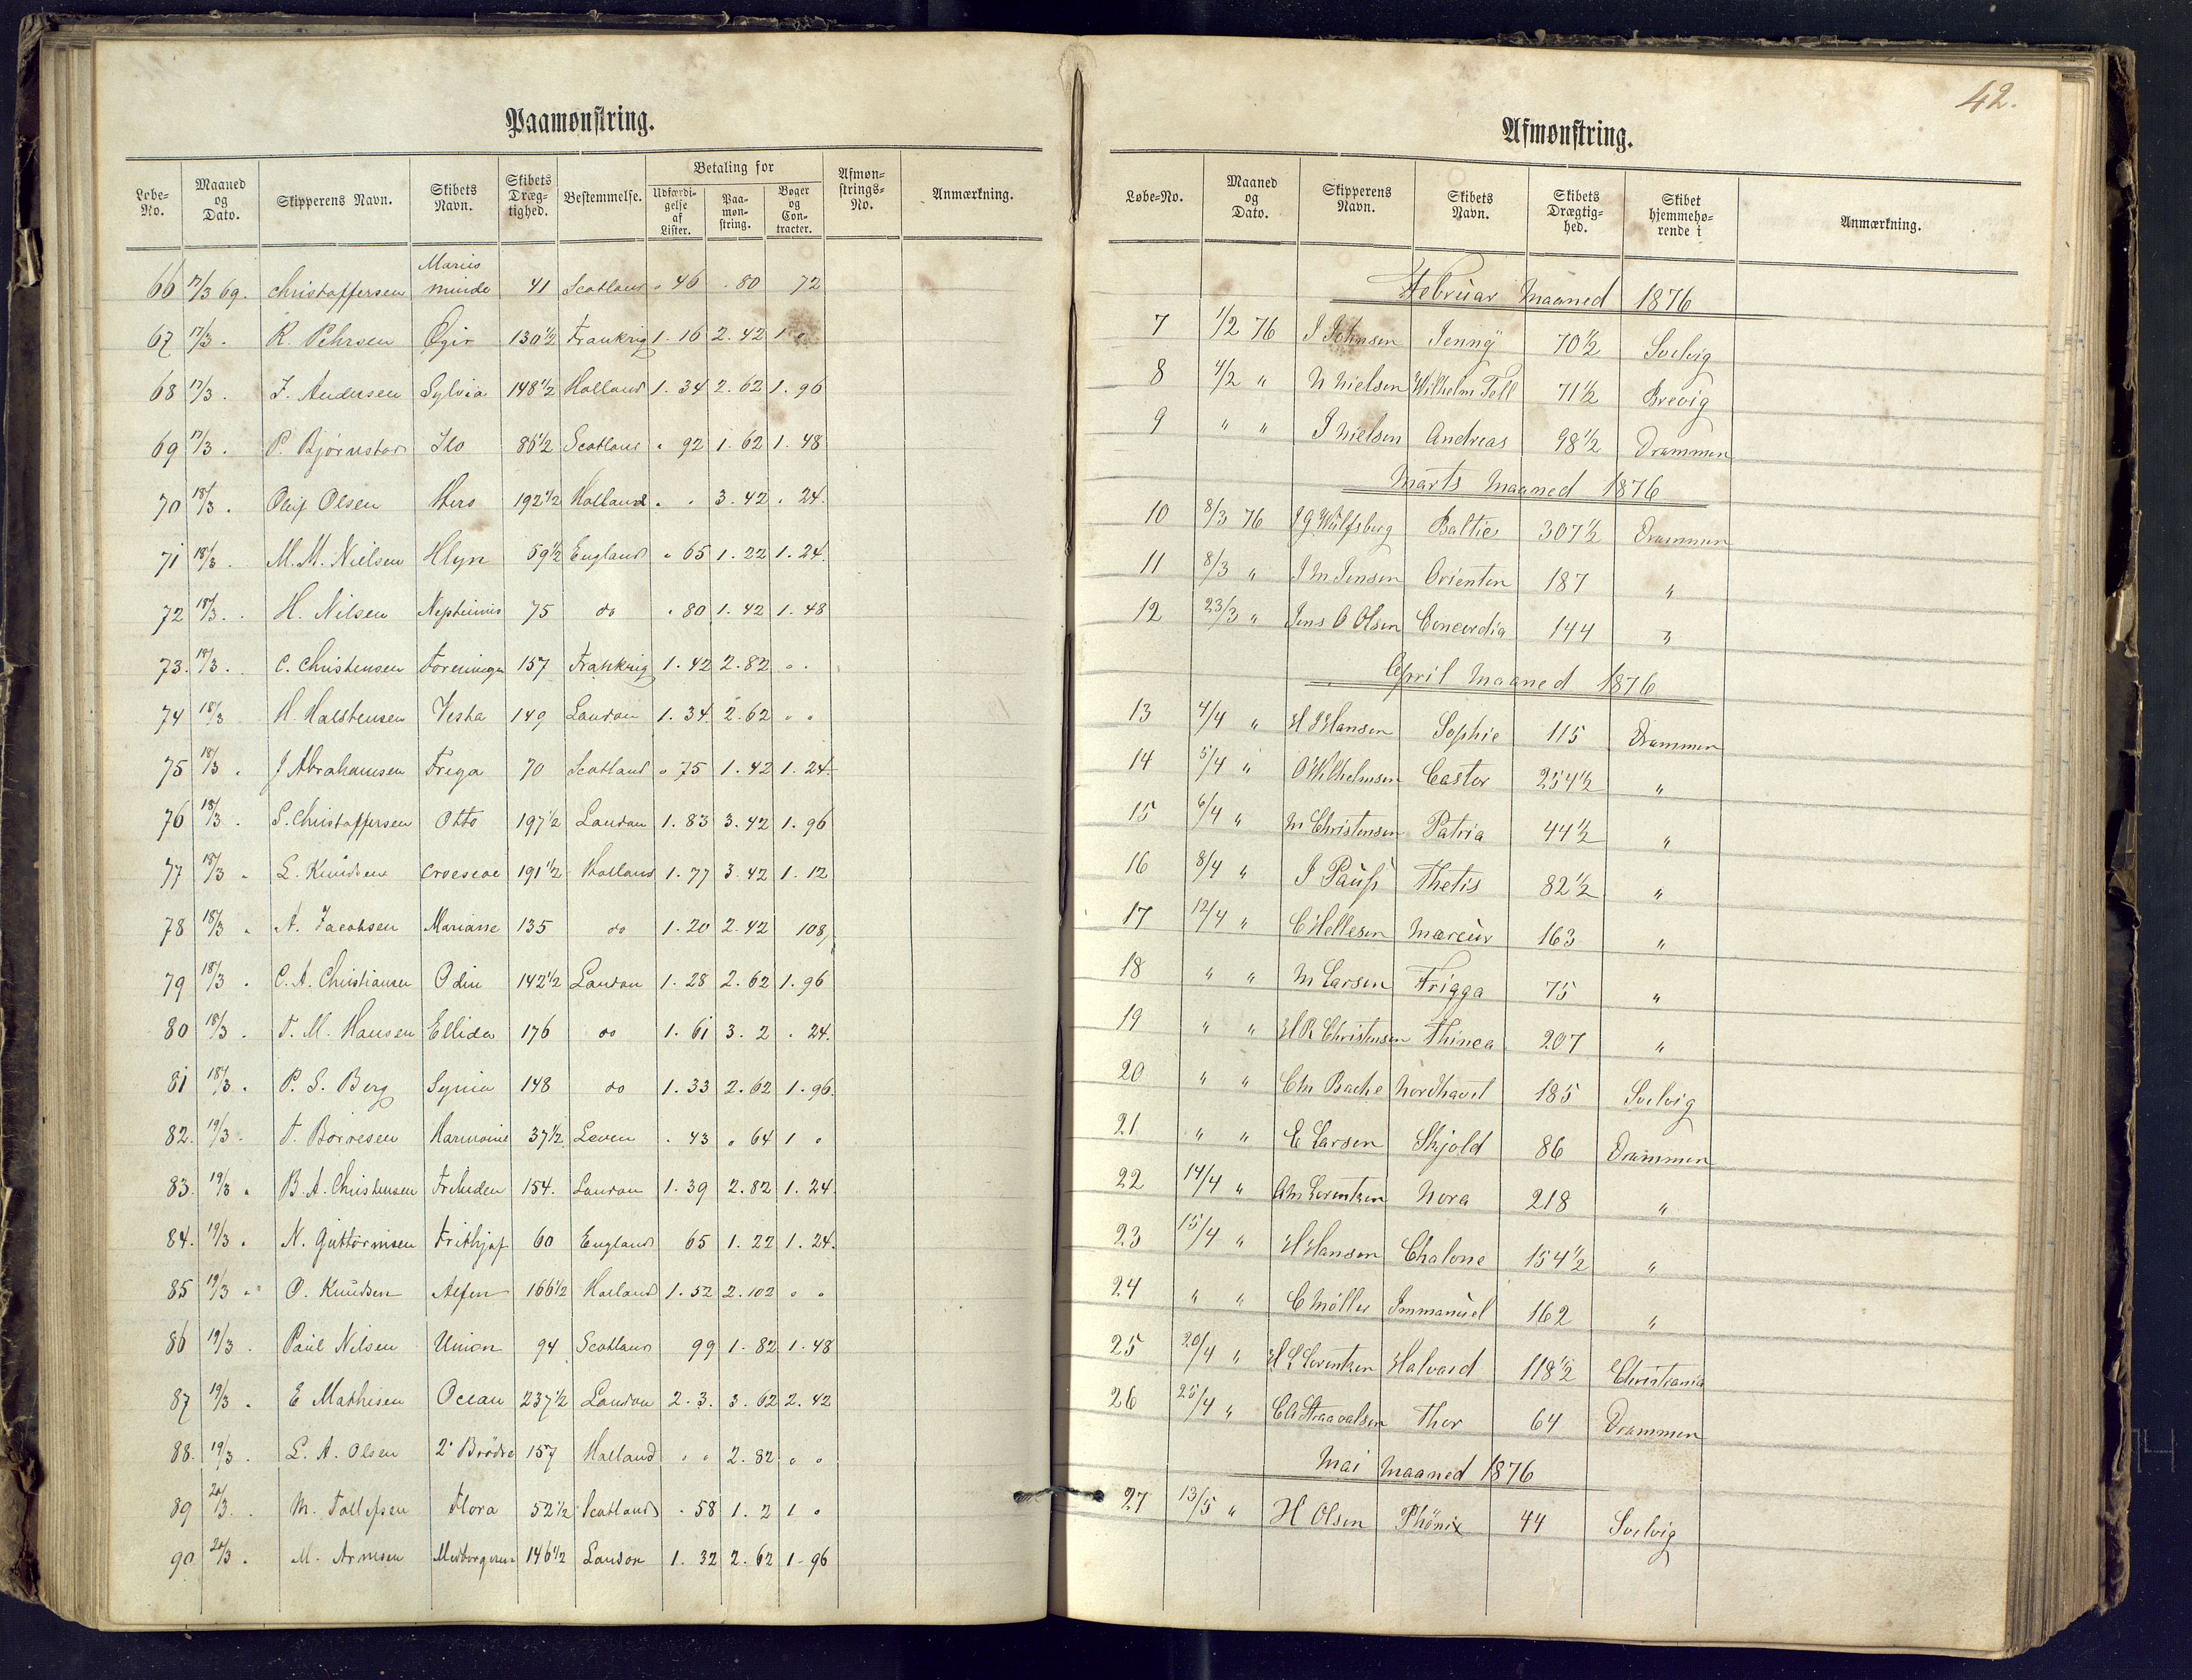 Paamønstring.
Løbe-No. | Maaned og Dato. | Skipperens Navn. | Skibets Navn. | Skibets Drægtighed. | Bestemmelse. | Betaling for | Udfærdigelse af Lister. | Paamønstring. | Bøger og Contracter. | Afmønstrings-No. | Anmærkning.
66 17/3 69. Christoffersen Maries minde 41 Scotland " 46 . 80 72
67 17/3 . R. Pehrsen Øgir 130 1/2 Frankrig 1. 16 2. 42 1 "
68 17/3 . J. Andersen Sylvia 148 1/2 Holland 1. 34 2. 62 1. 96
69 17/3 . P. Bjørnstad Ilo 86 1/2 Scotland " 92 1. 62 1. 48
70 18/3 . Oluf Olsen Hero 192 1/2 Holland " " 3. 42 . 24.
71 18/3 . M. M. Nielsen Hlyn 59 1/2 England " 65 1. 22 1. 24.
72 18/3 . H. Nilsen Neptunus 75 do " 80 1. 42 1. 48
73. 18/3 . C. Christensen Foreningen 157 Frankrig 1. 42 2. 82 " .
74 18/3 H. Halstensen Vesta 149 London 1. 34 2. 62 " "
75 18/3 . J Abrahamsen Freya 70 Scotland " 75 1. 42 1. 24.
76 18/3 . S. Christoffersen Otto 197 1/2 London 1. 83 3. 42 1. 96
77 18/3 . L. Knudsen 191 1/2 Holland 1. 77 3. 42 1. 12
78 18/3 . A. Jacobsen Mariane 135 do 1. 20 2. 42 108,
79 18/3 . C. A. Christiansen Odin 142 1/2 London 1. 28 2. 62 1. 96
80 18/3 . T. M. Hansen Ellida 176 do 1. 61 3. 2 . 24.
81 18/3 . P. S. Berg Synia 148 do 1. 33 2. 62 1. 96.
82. 19/3 . T. Borresen Harmonie 37 1/2 Leven . 43 " 64 1 "
83. 19/3 . B. A. Christensen Freheden 154. London 1. 39 2. 82 1. 24
84. 19/3 . N. Guttormsen Frithjof 60 England 65 1. 22 1. 24.
85 19/3 . O. Knudsen Alfen 166 1/2 Holland 1. 52 2. 102 " "
86 19/3 . Paul Nilsen Union 94 Scotland 99 1. 82 1. 48
87 19/3 . E Mathisen Ocean 237 1/2 London 2. 3. 3. 62 2. 42
88. 19/3 . L. A. Olsen 2 Brødre 157 Holland " " 2. 82 " "
89 20/3 . M. Tollefsen Flora 52 1/2 Scotland . 58 1. 2 1 "
90 20/3 . M. Arnesen Medborgeren 146 1/2 London 1. 32 2. 62 1. 96
42.
Afmønstring.
Løbe-No. | Maaned og Dato. | Skipperens Navn. | Skibets Navn. | Skibets Drægtighed. | Skibet hjemmehørende i | Anmærkning.
Februar Maaned 1876
7 1/2 76 J Johnsen Jenny 70 1/2 Svelvig
8 4/2 " N Nielsen Wilhelm Tell 71 1/2 Brevig
9 " " J Nielsen Andreas 98 1/2 Drammen
Marts Maaned 1876
10 8/3 76 J G Wulfsberg Baltic 307 1/2 Drammen
11 8/3 " J M Jensen Orienten 187 "
12 23/3 " Jens O Olsen Concordia 144 "
April Maaned 1876
13 4/4 " H J Hansen Sophie 115 Drammen
14 5/4 " O Wilhelmsen Castor 254 1/2 "
15 6/4 " M Christensen Patria 44 1/2 "
16 8/4 " J Pauss Thetis 82 1/2 "
17 12/4 " C Hellesen Marcur 163 "
18 " " M Larsen Frigga 75 "
19 " " H R Christensen Thinca 207 "
20 " " Chr Bache Nordhavet 185 Svelvig
21 " " C Larsen Skjold 86 Drammen
22 14/4 " A M Lorentzen Nora 218 "
23 15/4 " H Hansen Chalone 154 1/2 "
24 " " C Møller Immanuel 162 "
25 20/4 " H L Lorentzen Halvard 118 1/2 Christiania
26 25/4 " Thor 64 Drammen
Mai Maaned 1876
27 13/5 " H Olsen Phönix 44 Svelvig